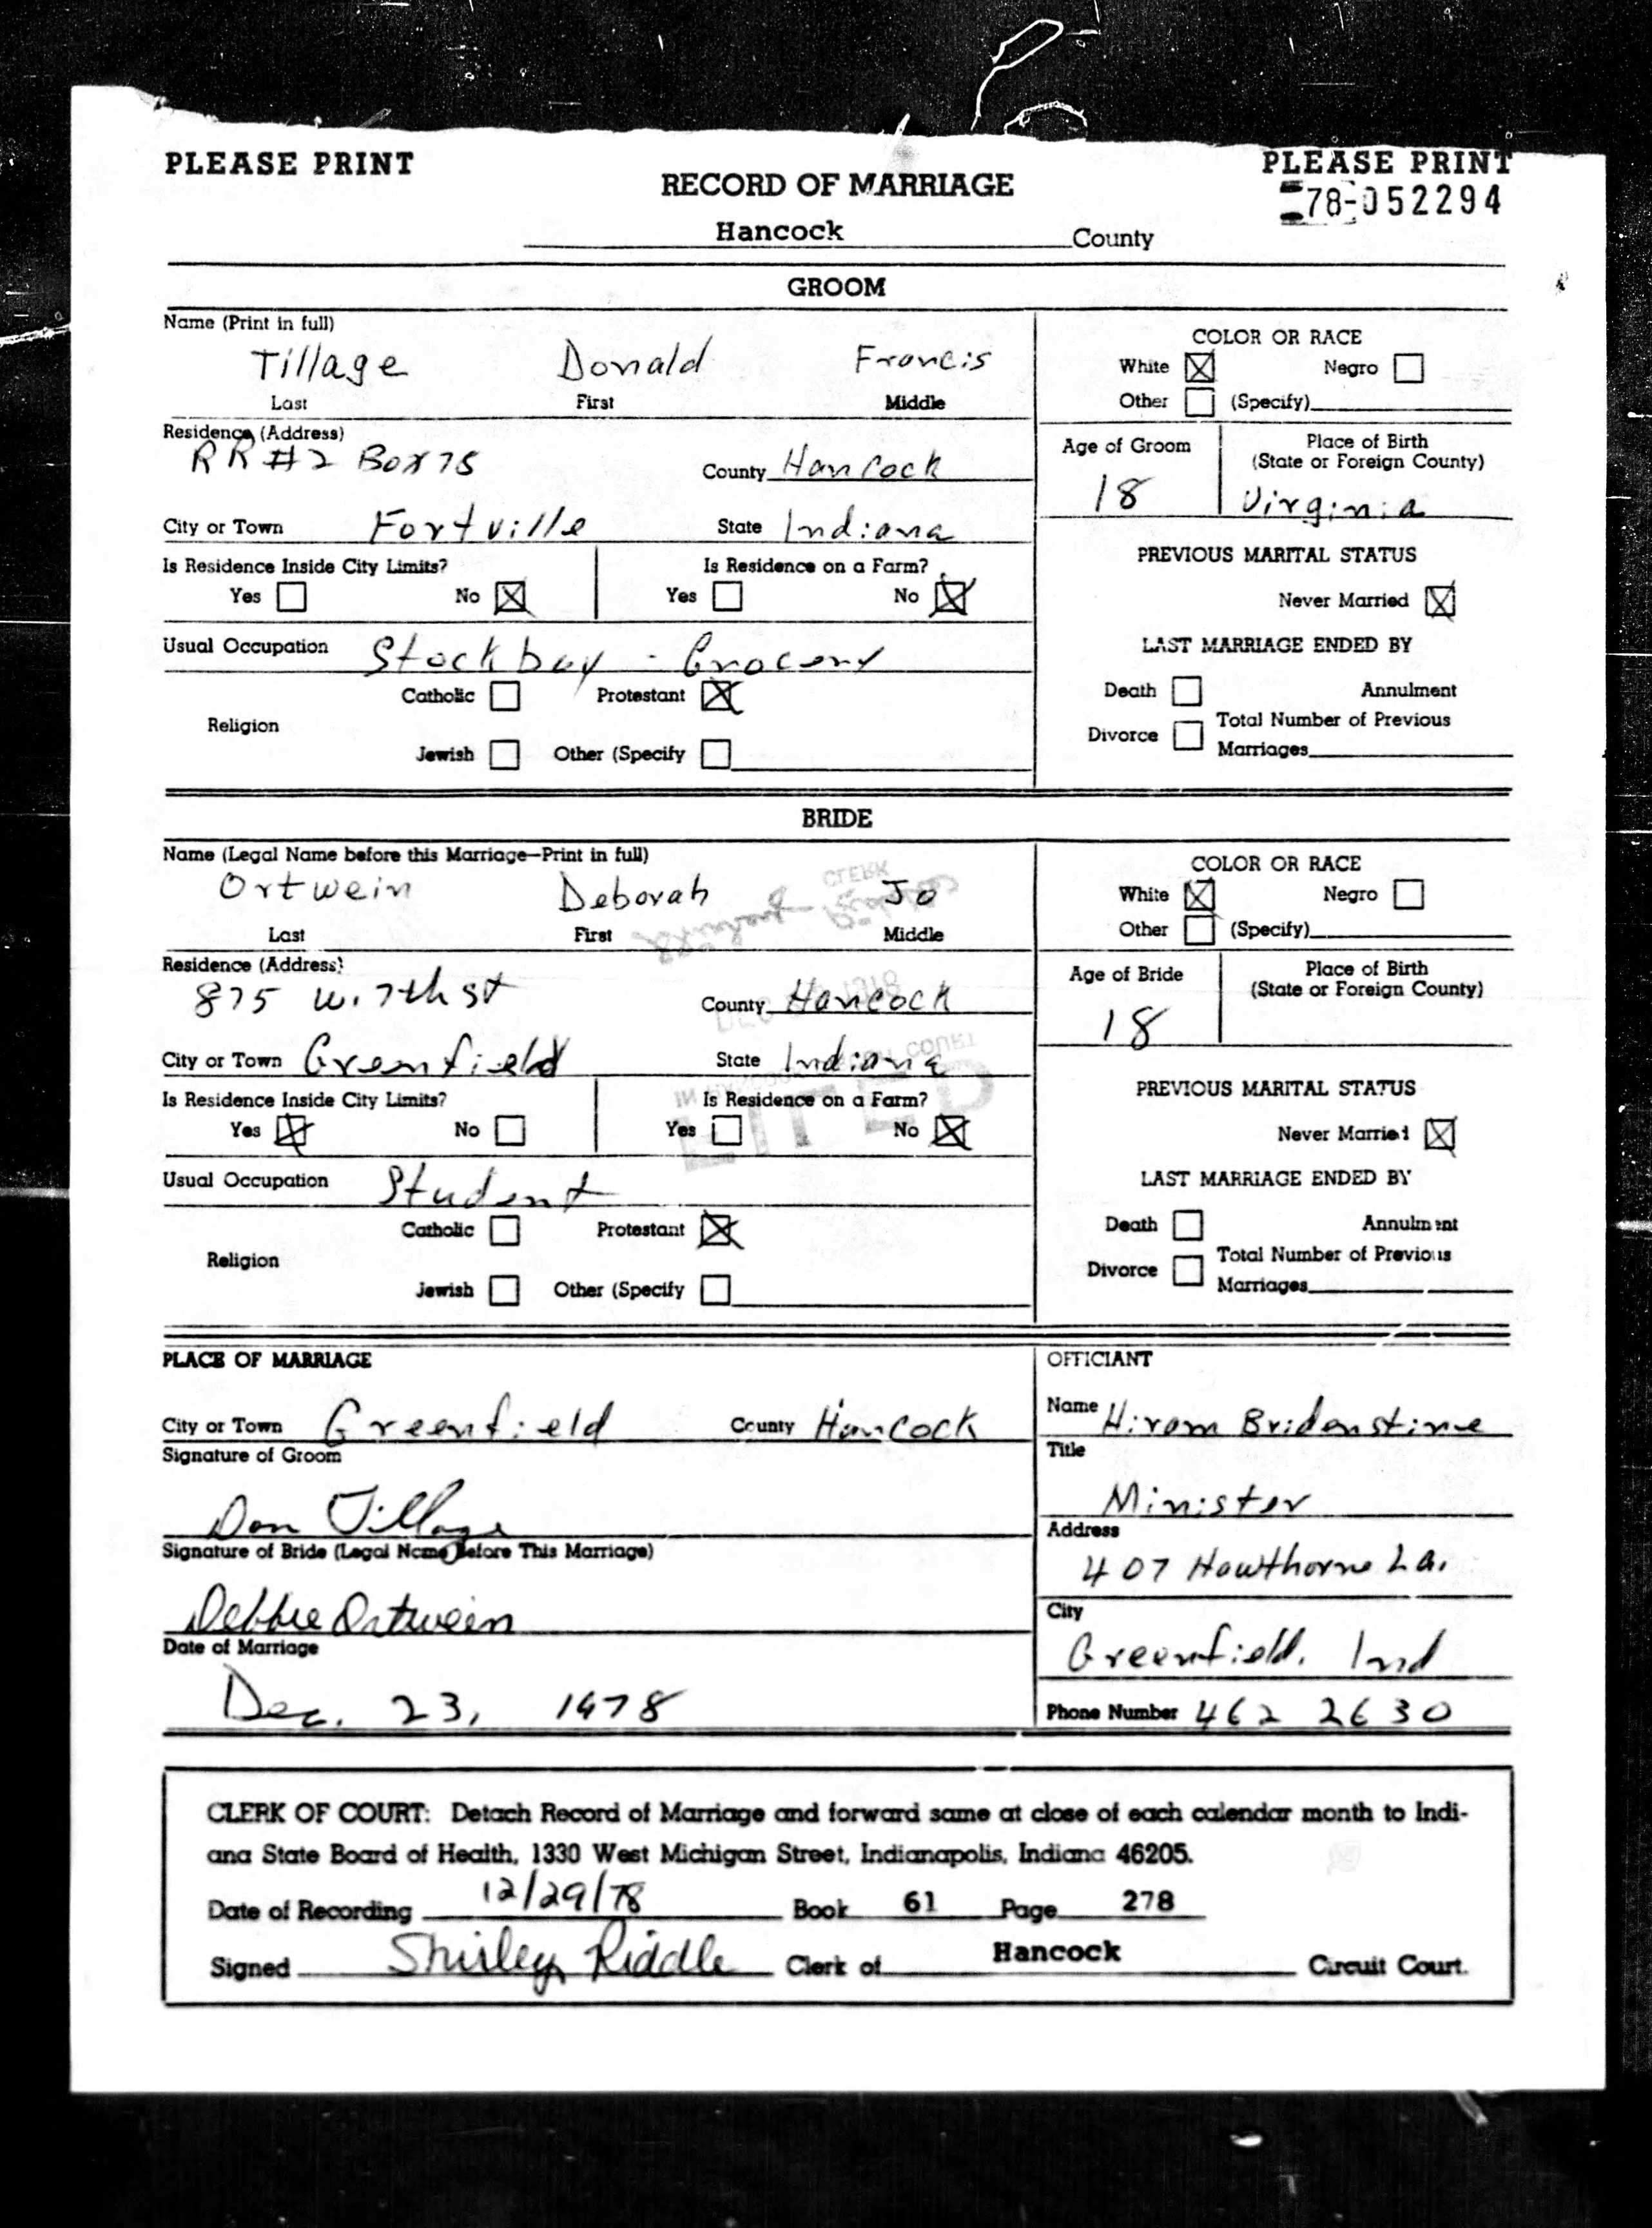 PLEASE PRINT
PLEASE PRINT
RECORD OF MARRIAGE
78-052294
Hancock County
GROOM
Name (Print in full)
COLOR OR RACE
Tillage Donald Francis
White ☒ Negro ☐
Last First Middle
Other ☐ (Specify)
Residence (Address)
RR#2 Box 75 County Hancock
Age of Groom
Place of Birth
(State or Foreign County)
18 Virginia
City or Town Fortville State Indiana
Is Residence Inside City Limits? Is Residence on a Farm?
PREVIOUS MARITAL STATUS
Yes ☐ No ☒ Yes ☐ No ☒
Never Married ☒
Usual Occupation Stock boy - Grocery
LAST MARRIAGE ENDED BY
Catholic ☐ Protestant ☒
Death ☐ Annulment
Religion
Total Number of Previous
Divorce ☐ Marriages
Jewish ☐ Other (Specify ☐
BRIDE
Name (Legal Name before this Marriage—Print in full)
COLOR OR RACE
Ortwein Deborah Jo
White ☒ Negro ☐
Last First Middle
Other ☐ (Specify)
Residence (Address)
875 W. 7th st County Hancock
Age of Bride
Place of Birth
(State or Foreign County)
18
City or Town Greenfield State Indiana
Is Residence Inside City Limits? Is Residence on a Farm?
PREVIOUS MARITAL STATUS
Yes ☒ No ☐ Yes ☐ No ☒
Never Married ☒
Usual Occupation Student
LAST MARRIAGE ENDED BY
Catholic ☐ Protestant ☒
Death ☐ Annulment
Religion
Total Number of Previous
Divorce ☐ Marriages
Jewish ☐ Other (Specify ☐
PLACE OF MARRIAGE
City or Town Greenfield County Hancock
Signature of Groom
Don Tillage
Signature of Bride (Legal Name Before This Marriage)
Debbie Ortwein
Date of Marriage
Dec. 23, 1978
OFFICIANT
Name Hiram Bridenstine
Title
Minister
Address
407 Hawthorne La.
City
Greenfield, Ind
Phone Number 462 2630
CLERK OF COURT: Detach Record of Marriage and forward same at close of each calendar month to Indi-
ana State Board of Health, 1330 West Michigan Street, Indianapolis, Indiana 46205.
Date of Recording 12/29/78 Book 61 Page 278
Signed Shirley Riddle Clerk of Hancock Circuit Court.